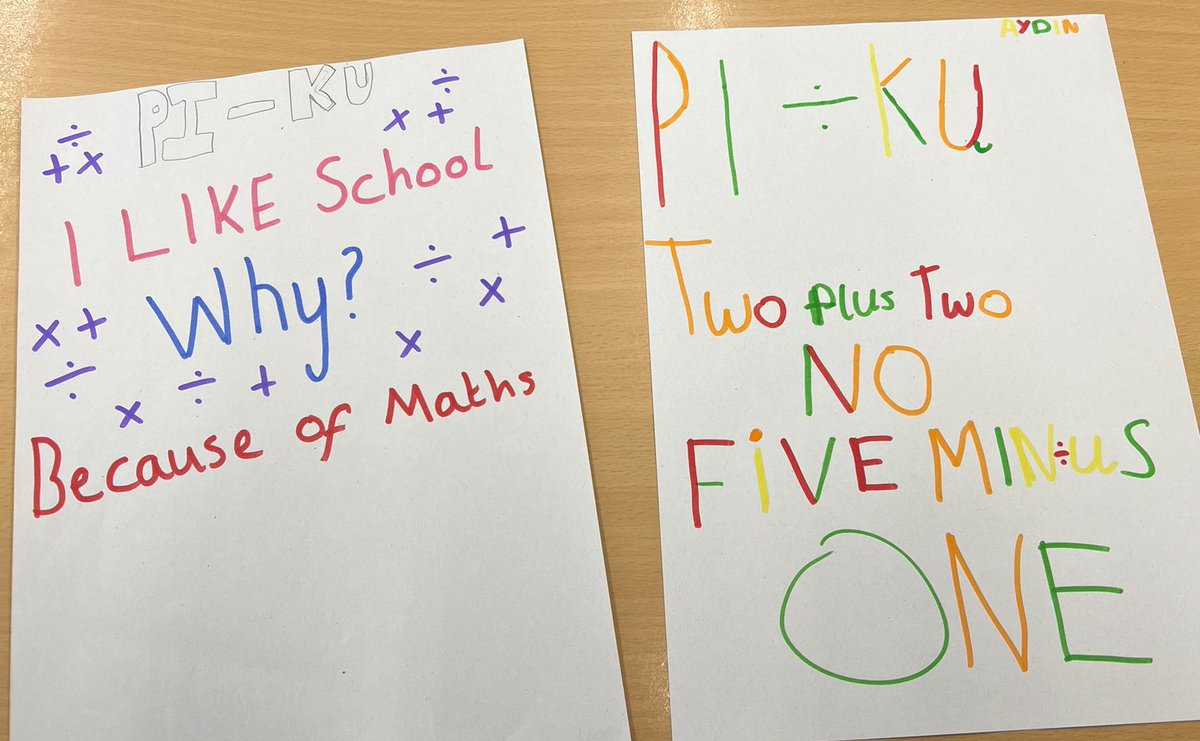 PI - KU
÷
+ x
÷
x +
I LIKE School
Why?
x +
÷
x
÷
+
÷
+
x
x
Because of Maths
AYDIN
PI ÷ KU
Two plus Two
NO
FiVE MIN÷uS
ONE